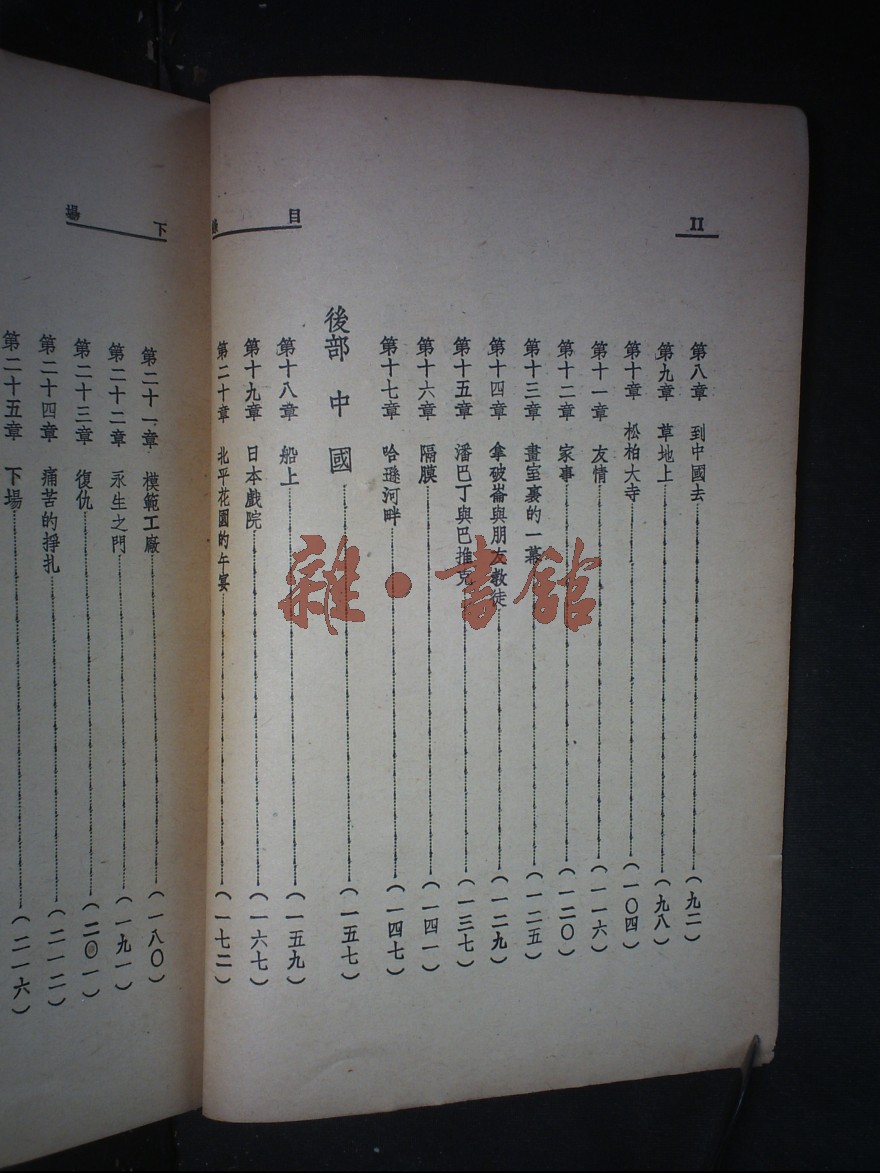 II
目
第八章 到中國去 (九二)
第九章 草地上 (九八)
第十章 松柏大寺 (一〇四)
第十一章 友情 (一一六)
第十二章 家事 (一二〇)
第十三章 畫室裏的一幕 (一二五)
第十四章 拿破崙與朋友教徒 (一二九)
第十五章 潘巴丁與巴推克 (一三七)
第十六章 隔膜 (一四一)
第十七章 哈遜河畔 (一四七)
後部 中國 (一五七)
第十八章 船上 (一五九)
第十九章 日本戲院 (一六七)
第二十章 北平花園的午宴 (一七二)
下場
第二十一章 模範工廠 (一八〇)
第二十二章 永生之門 (一九一)
第二十三章 復仇 (二〇一)
第二十四章 痛苦的掙扎 (二一二)
第二十五章 下場 (二一六)
雜·書館